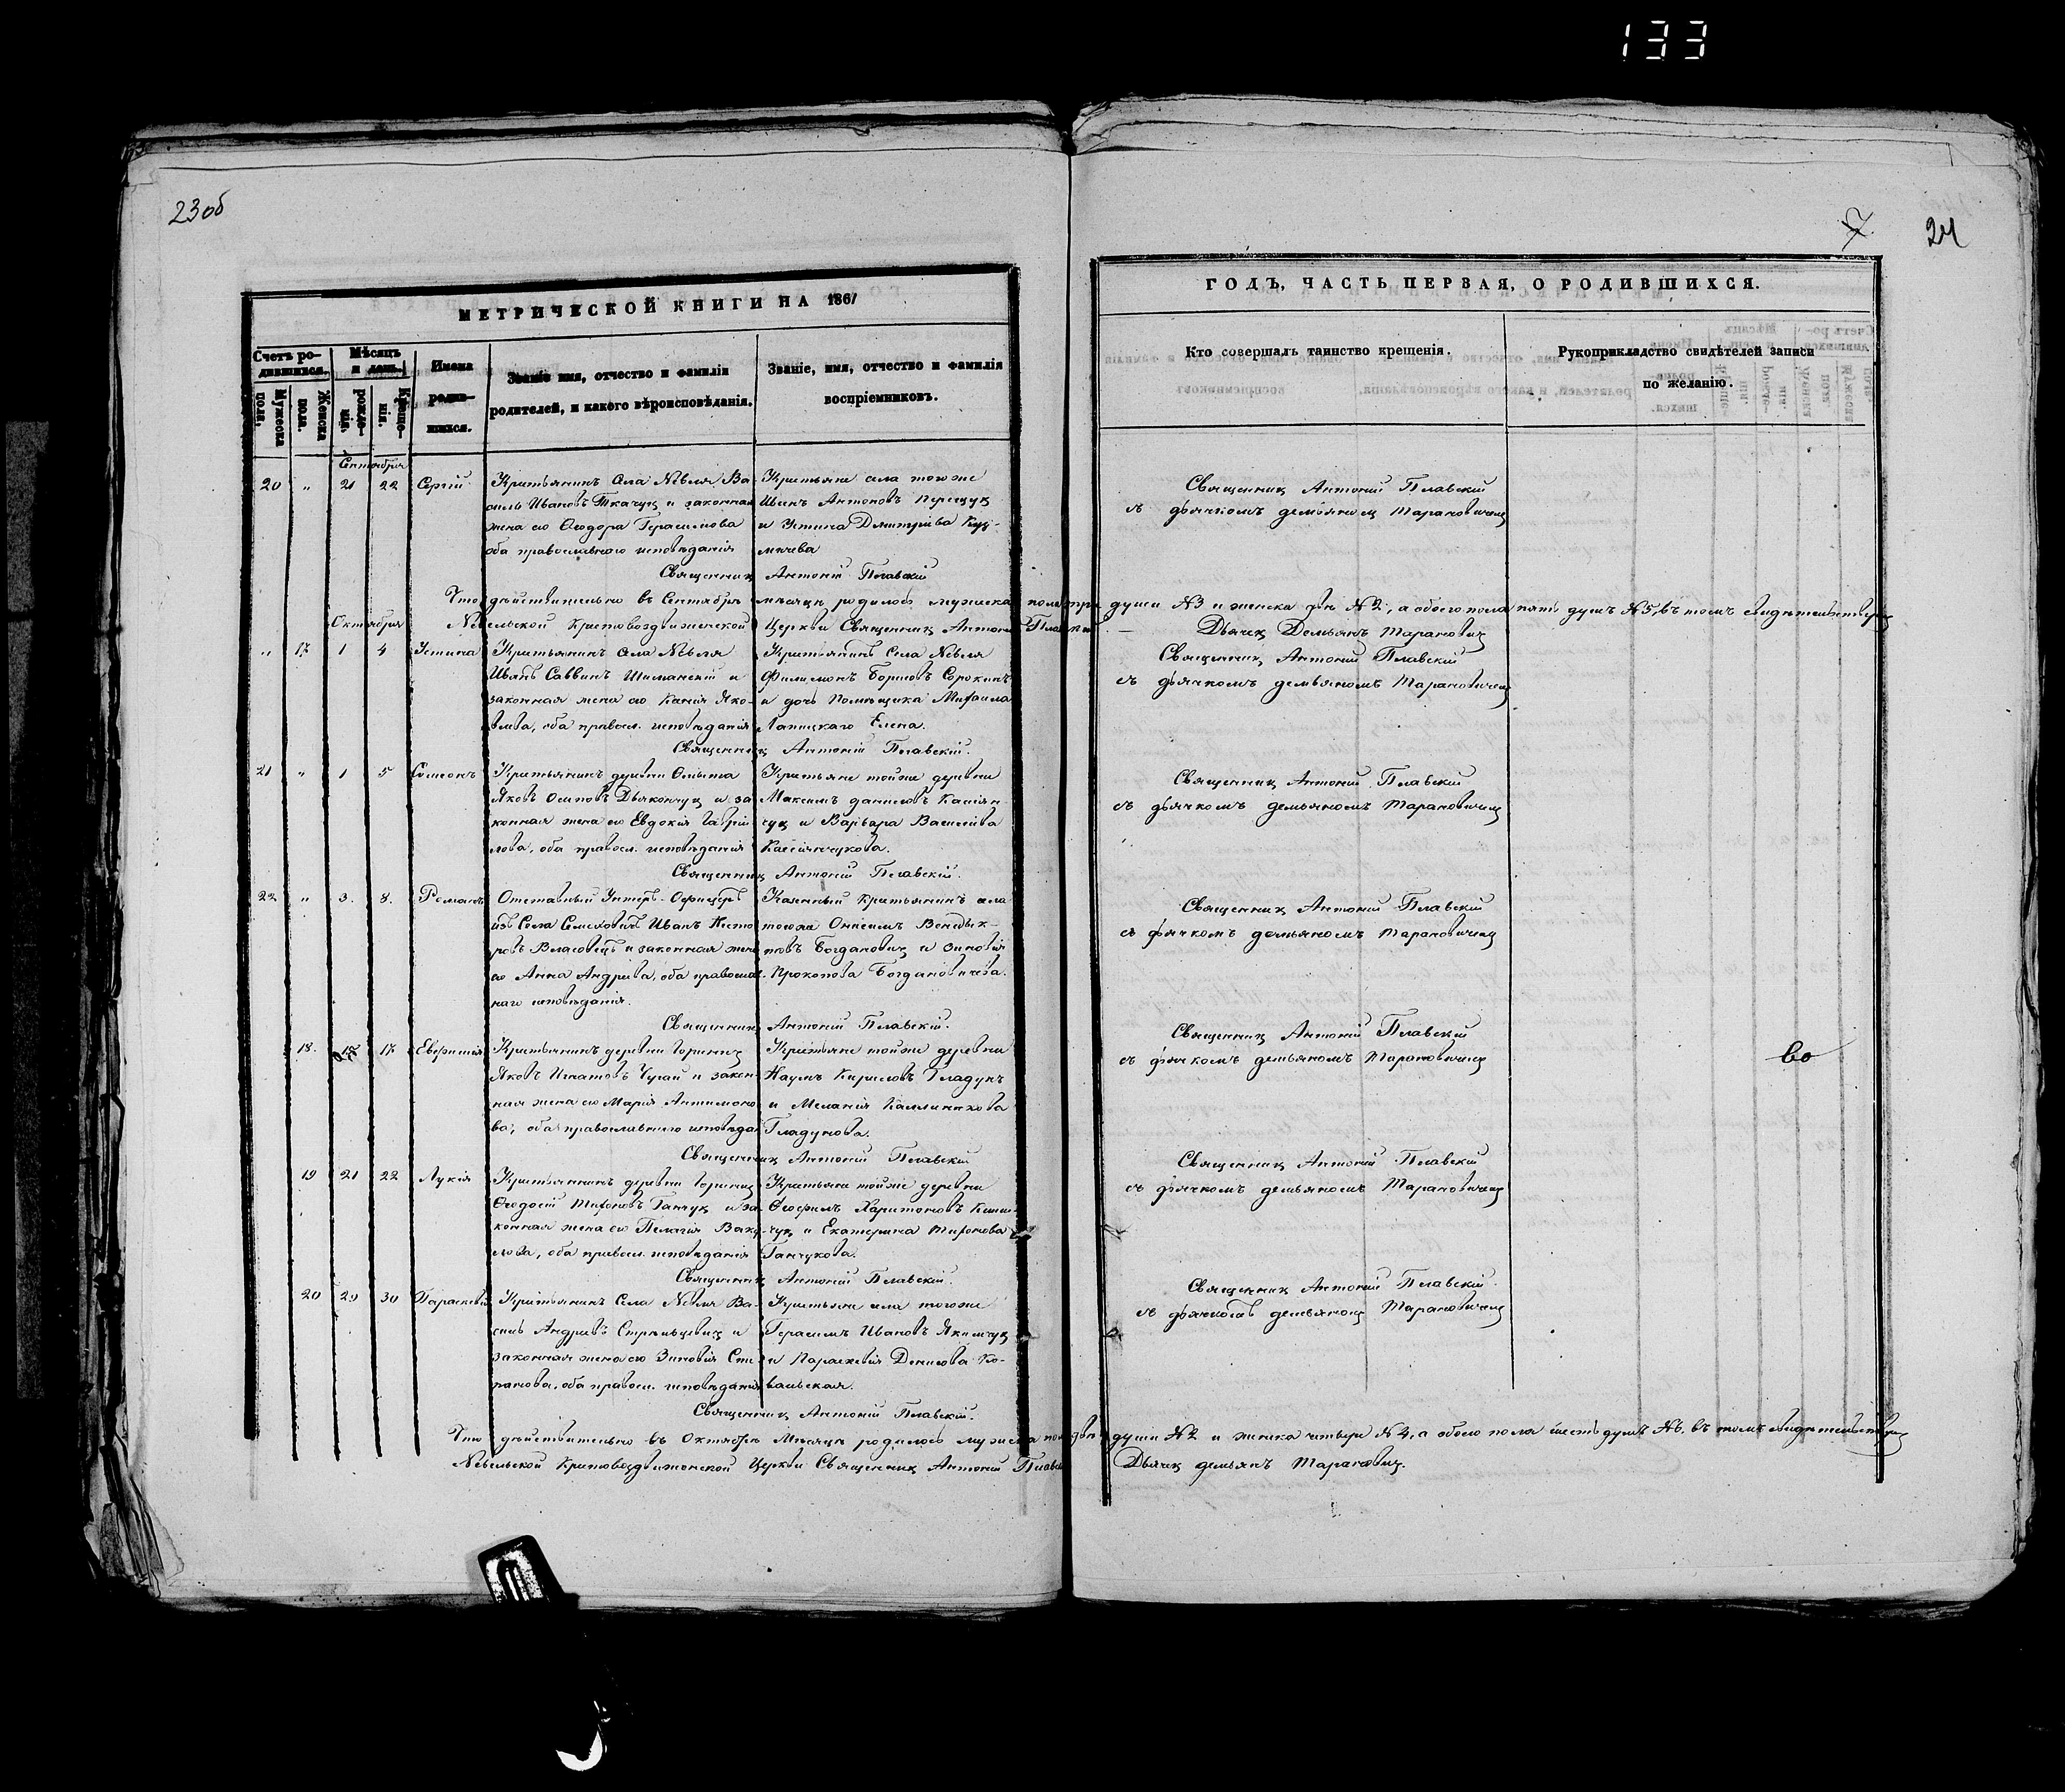 133
23об
7
24
МЕТРИЧЕСКОЙ КНИГИ НА 1861
ГОДЪ, ЧАСТЬ ПЕРВАЯ, О РОДИВШИХСЯ.
Счетъ родившихся.
Мужеска пола.
Женска пола.
Мѣсяцъ и день.
рожденія.
Крещенія.
Имена родившихся.
Званіе имя, отчество и фамилія
родителей, и какого вѣроисповѣданія.
Званіе, имя, отчество и фамилія
воспріемниковъ.
Кто совершалъ таинство крещенія.
Рукоприкладство свидѣтелей записи
по желанію.
Сентября
20 " 21 22 Сергій
Крестьянинъ Села Невля Ва-
силь Ивановъ Ткачукъ и законная
жена его Ѳеодора Герасимова
оба православнаго исповѣданія
Крестьяне села тогоже
Антоновъ
и Устина Дмитріева Куз-
мичева
Священникъ Антоній Плавскій
съ дьячкомъ Демьяномъ Тарановичемъ
Священникъ Антоній Плавскій
Что дѣйствительно въ Сентябрѣ мѣсяцѣ родилось мужеска пола три души №3 и женска двѣ №2, а обоего пола пять душъ №5, въ томъ свидѣтельствуемъ
Невельской Крестовоздвиженской Церкви Священникъ Антоній Плавскій
Дьячекъ Демьянъ Тарановичъ
Октября
" 17 1 4 Устина
Крестьянинъ Села Невля
Иванъ Саввинъ Шиманскій и
законная жена его Ксенія Яко-
влева, оба правосл. исповѣданія
Крестьянинъ Села Невля
Филимонъ Борисовъ Сорокинъ
и дочь Помѣщика Михаила
Елена.
Священникъ Антоній Плавскій
съ дьячкомъ Демьяномъ Тарановичемъ
Священникъ Антоній Плавскій.
21 " 1 5 Симеонъ
Крестьянинъ деревни
Яковъ Осиповъ Дьякончукъ и за-
конная жена его Евдокія Гаврии-
лова, оба правосл. исповѣданія
Крестьяне тойже деревни
Максимъ Даниловъ Касіян-
чукъ и Варвара Васильева
Кассіянчукова.
Священникъ Антоній Плавскій
съ дьячкомъ Демьяномъ Тарановичемъ
Священникъ Антоній Плавскій.
22 " 3. 8. Романъ
Отставный Унтеръ-Офицеръ
изъ Села Семховичъ Иванъ Несто-
ровъ Власовецъ и законная жена
его Анна Андреева, оба православ-
наго исповѣданія.
Казенный Крестьянинъ села
тогоже Онисимъ Венедик-
товъ Богдановичъ и Зиновія
Прокопова Богдановичева.
Священникъ Антоній Плавскій
съ дьячкомъ Демьяномъ Тарановичемъ
Священникъ Антоній Плавскій.
18. 17 Евфимія
Крестьянинъ деревни Горинич
Яковъ Игнатовъ Чугай и закон-
ная жена его Марія Антимоно-
ва, оба православнаго исповѣда
Крестьяне тойже деревни
Наумъ Кириловъ Гладунъ
и Меланія Каллиникова
Гладунова.
Священникъ Антоній Плавскій
съ дьячкомъ Демьяномъ Тарановичемъ
во
Священникъ Антоній Плавскій
19 21 22 Лукія
Крестьянинъ деревни Горинич
Ѳеодосій Тихоновъ Ганчукъ и за-
конная жена его ПелагіяВаку-
лова, оба правосл. исповѣданія
Крестьяне тойже деревни
Ѳеофилъ Харитоновъ
чукъ и Екатерина Тихонова
Ганчукова.
Священникъ Антоній Плавскій
съ дьячкомъ Демьяномъ Тарановичемъ
Священникъ Антоній Плавскій.
20 29 30 Параскевія
Крестьянинъ Села Невля Ва-
силь Андреевъ Стрельцевичъ и
законная жена его Зиновія Сте-
панова, оба правосл. исповѣданія
Крестьяне села тогоже
Герасимъ Ивановъ Якимчукъ
и Параскевія Денисова Ко-
вальская.
Священникъ Антоній Плавскій
съ дьячкомъ Демьяномъ Тарановичемъ
Священникъ Антоній Плавскій.
Что дѣйствительно въ Октябрѣ Мѣсяцѣ родилось мужеска пола двѣ души №2 и женска четыре №4, а обоего пола шесть душъ №6. въ томъ свидѣтельствуемъ
Невельской Крестовоздвиженской Церкви Священникъ Антоній Плавскій
Дьячекъ Демьянъ Тарановичъ.